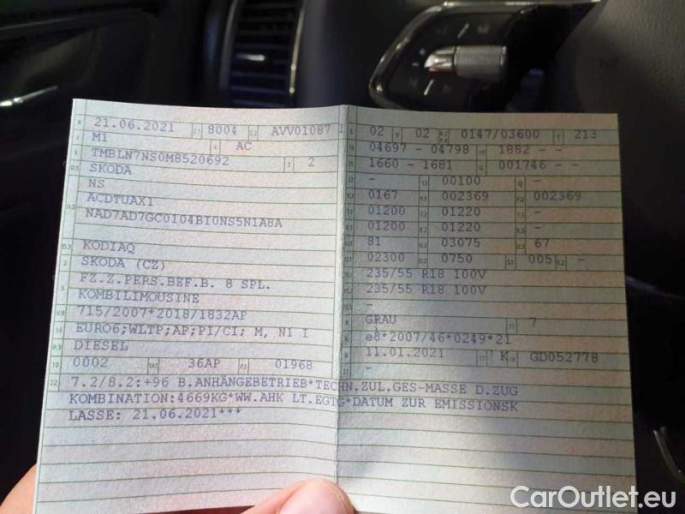 21.06.2021 8004 AVV01087 1
M1 AC
TMBLN7NS0M8520692 2
SKODA
NS
ACDTUAX1
NAD7AD7GC0104BI0NS5N1A8A
KODIAQ
SKODA (CZ)
FZ.Z.PERS.BEF.B. 8 SPL.
KOMBILIMOUSINE
715/2007*2018/1832AP
EURO6;WLTP;AP;PI/CI; M, N1 I
DIESEL
0002 36AP 01968
7.2/8.2:+96 B.ANHÄNGEBETRIEB*TECHN.ZUL.GES-MASSE D.ZUG
KOMBINATION:4669KG*WW.AHK LT.EGTG*DATUM ZUR EMISSIONSK
LASSE: 21.06.2021***
02 02 0147/03600 213
04697 - 04798 1882 - -
1660 - 1681 001746 - -
- 00100 -
0167 002369 002369
01200 01220 -
01200 01220 -
81 03075 67
02300 0750 005 -
235/55 R18 100V
235/55 R18 100V
-
GRAU 7
e8*2007/46*0249*21
11.01.2021 K GD052778
CarOutlet.eu